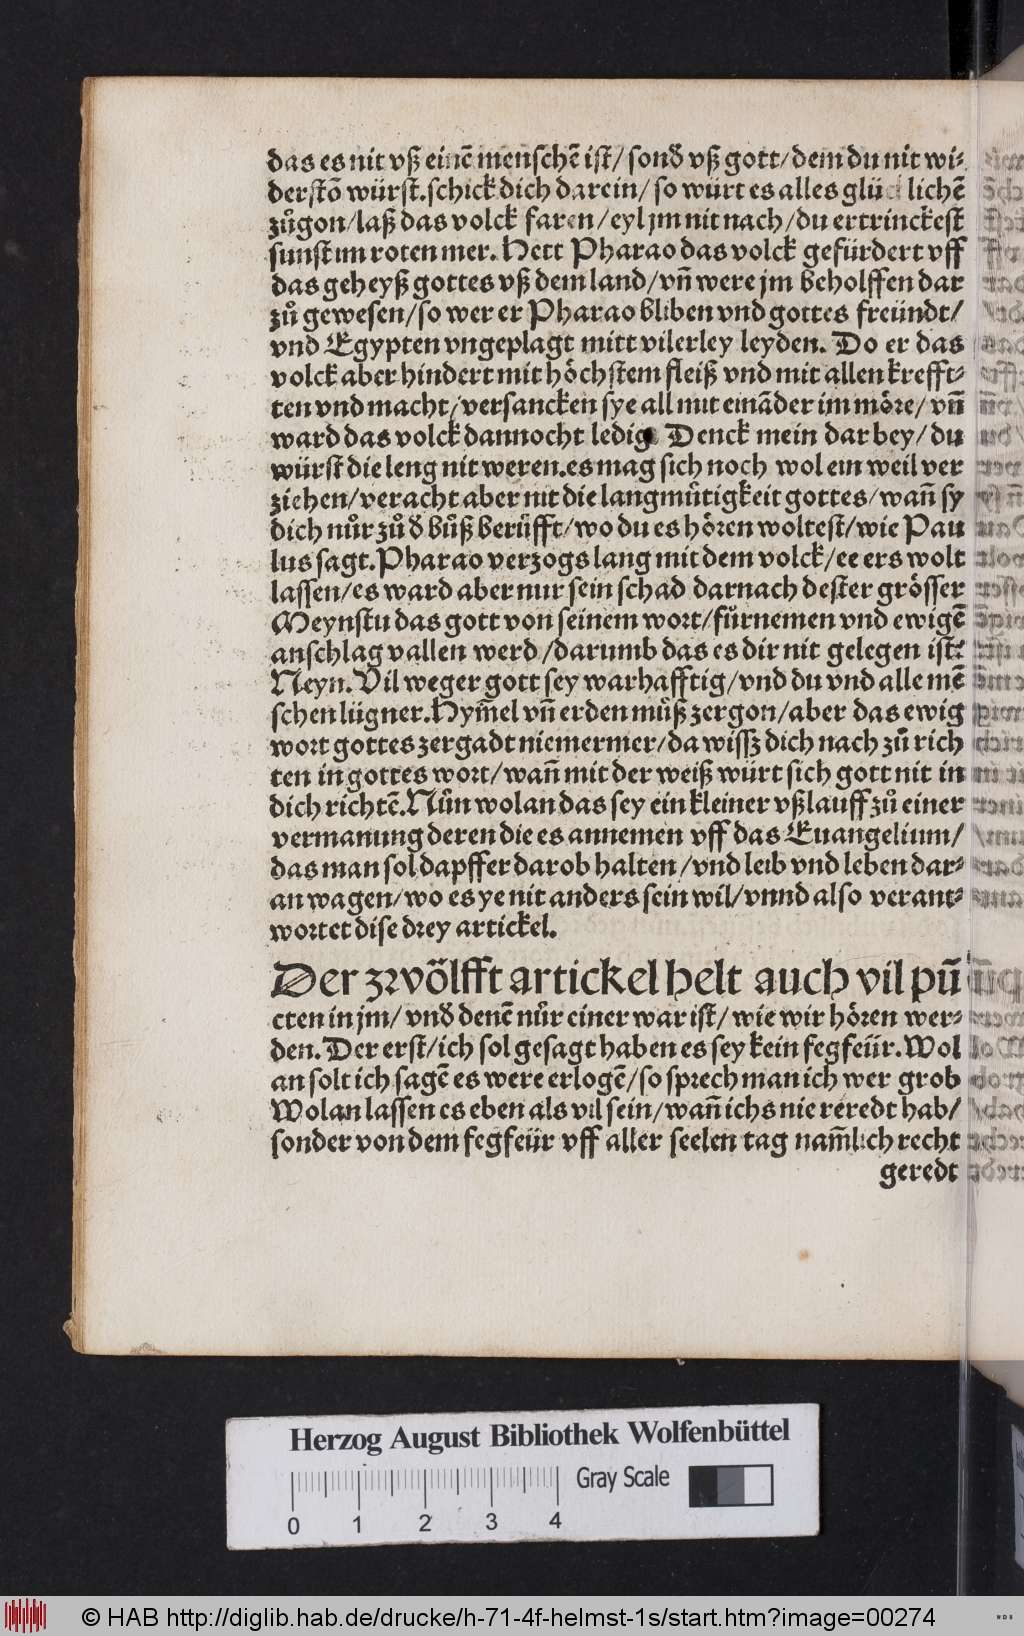 das es nit vß einē menschē ist/ sonď vß gott/ dem du nit wi⸗
derstō würst. schick dich darein/ so würt es alles glüc lichē
zůgon/ laß das volck faren/ eyl jm nit nach/ du ertrinckest
sunst im roten mer. Hett Pharao das volck gefürdert vff
das geheyß gottes vß dem land/ vn̄ were jm beholffen dar
zů gewesen/ so wer er Pharao bliben vnd gottes freündt/
vnd Egypten vngeplagt mitt vilerley leyden. Do er das
volck aber hindert mit höchstem fleiß vnd mit allen krefft⸗
ten vnd macht/ versancken sye all mit eināder im möre/ vn̄
ward das volck dannocht ledig. Denck mein dar bey/ du
würst die leng nit weren. es mag sich noch wol ein weil ver
ziehen/ veracht aber nit die langmůtigkeit gottes/ wan̄ sy
dich nůr zů ď bůß berůfft/ wo du es hören woltest/ wie Pau
lus sagt. Pharao verzogs lang mit dem volck/ ee ers wolt
lassen/ es ward aber nur sein schad darnach dester grösser
Meynstu das gott von seinem wort/ fůrnemen vnd ewigē
anschlag vallen werd/ darumb das es dir nit gelegen ist?
Neyn. Vil weger gott sey warhafftig/ vnd du vnd alle mē
schen lügner. Hym̄el vn̄ erden můß zergon/ aber das ewig
wort gottes zergadt niemermer/ da wissz dich nach zů rich
ten in gottes wort/ wan̄ mit der weiß würt sich gott nit in
dich richtē. Nůn wolan das sey ein kleiner vßlauff zů einer
vermanung deren die es annemen vff das Euangelium/
das man sol dapffer darob halten/ vnd leib vnd leben dar⸗
an wagen/ wo es ye nit anders sein wil/ vnnd also verant⸗
wortet dise drey artickel.
Der zwölfft artickel helt auch vil pū
cten in jm/ vnď denē nůr einer war ist/ wie wir hören wer⸗
den. Der erst/ ich sol gesagt haben es sey kein fegfeür. Wol
an solt ich sagē es were erlogē/ so sprech man ich wer grob
Wolan lassen es eben als vil sein/ wan̄ ichs nie reredt hab/
sonder von dem fegfeür vff aller seelen tag nam̄lich recht
geredt
Herzog August Bibliothek Wolfenbüttel
Gray Scale
0 1 2 3 4
© HAB http://diglib.hab.de/drucke/h-71-4f-helmst-1s/start.htm?image=00274